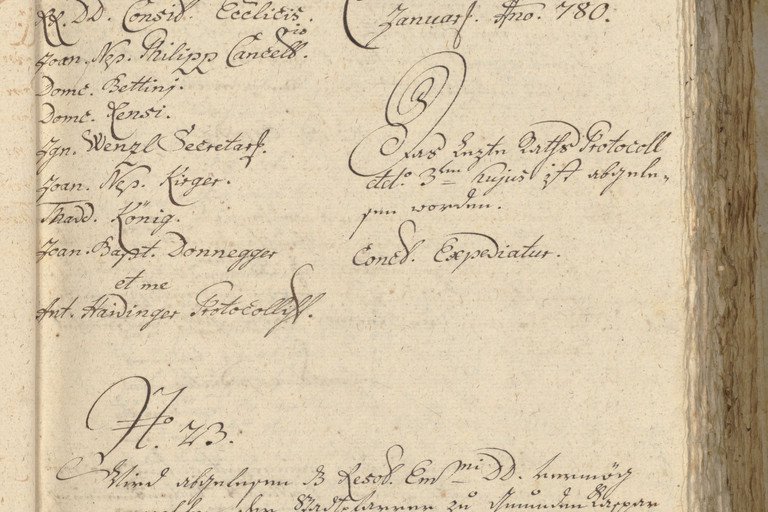 RR. DD. Consil. Ecclicis.
Joan. Nep. Philipp Cancell.rio
Domc. Bettinj.
Domc. Rensi.
Ign. Wenzl Secretarj.
Joan. Nep. Kirger.
Thadd. König.
Joan. Bapt. Donnegger
et me
Ant. Haidinger Protocollist.
Januarj. Ano. 780.
Das lezte Raths Protocoll
ddo. 3tn hujus ist abgele-
sen worden.
Concl. Expediatur.
No. 23.
Wird abgelesen Resol. Emmi DD. vermög
der Stadtpfarrer zu Gmünden Kaspar